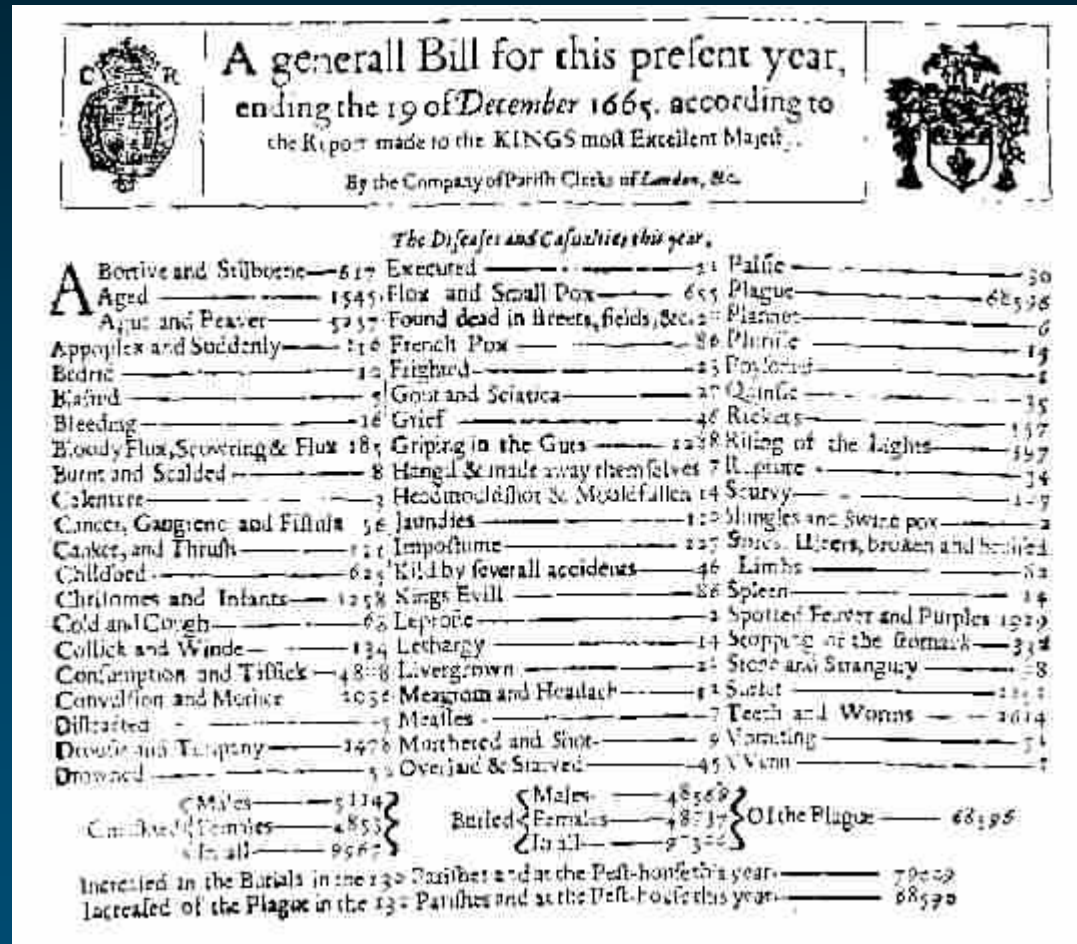 C R
A generall Bill for this preſent year,
ending the 19 of December 1665. according to
the Report made to the KINGS moſt Excellent Majeſty.
By the Company of Pariſh Clerks of London, &c.
The Diſeaſes and Caſualties this year.
ABortive and Stilborne 617
Aged 1545
Ague and Feaver 5257
Appoplex and Suddenly 116
Bedrid 10
Blaſted 5
Bleeding 16
Bloody Flux, Scowring & Flux 185
Burnt and Scalded 8
Calenture 3
Cancer, Gangrene and Fiſtula 56
Canker, and Thruſh 111
Childbed 625
Chriſomes and Infants 1258
Cold and Cough 68
Collick and Winde 134
Conſumption and Tiſſick 4808
Convulſion and Mother 2036
Diſtracted 5
Dropſie and Timpany 1478
Drowned
Executed 21
Flox and Small Pox 655
Found dead in ſtreets, fields, &c.
French Pox 86
Frighted 23
Gout and Sciatica 27
Grief 46
Griping in the Guts 1288
Hang'd & made away themſelves 7
Headmouldſhot & Mouldfallen 14
Jaundies 110
Impoſtume 227
Kild by ſeverall accidents 46
Kings Evill 86
Leproſie 2
Lethargy 14
Livergrown
Meagrom and Headach 12
Meaſles 7
Murthered and Shot 9
Overlaid & Starved 45
Palſie 30
Plague 68596
Plannet 6
Pluriſie 15
Poyſoned 1
Quinſie 35
Rickets 557
Riſing of the Lights 397
Rupture 34
Scurvy
Shingles and Swine pox 2
Sores, Ulcers, broken and bruiſed
Limbs 82
Spleen 14
Spotted Feaver and Purples 1929
Stopping of the ſtomack 332
Stone and Strangury
Surfet
Teeth and Worms 2614
Vomiting 51
VVenn 1
Chriſtned
Males 5114
Females 4853
In all 9967
Buried
Males 48569
Females 48737
In all 97306
Of the Plague 68596
Increaſed in the Burials in the 130 Pariſhes and at the Peſt-houſe this year 79009
Increaſed of the Plague in the 130 Pariſhes and at the Peſt-houſe this year 68590